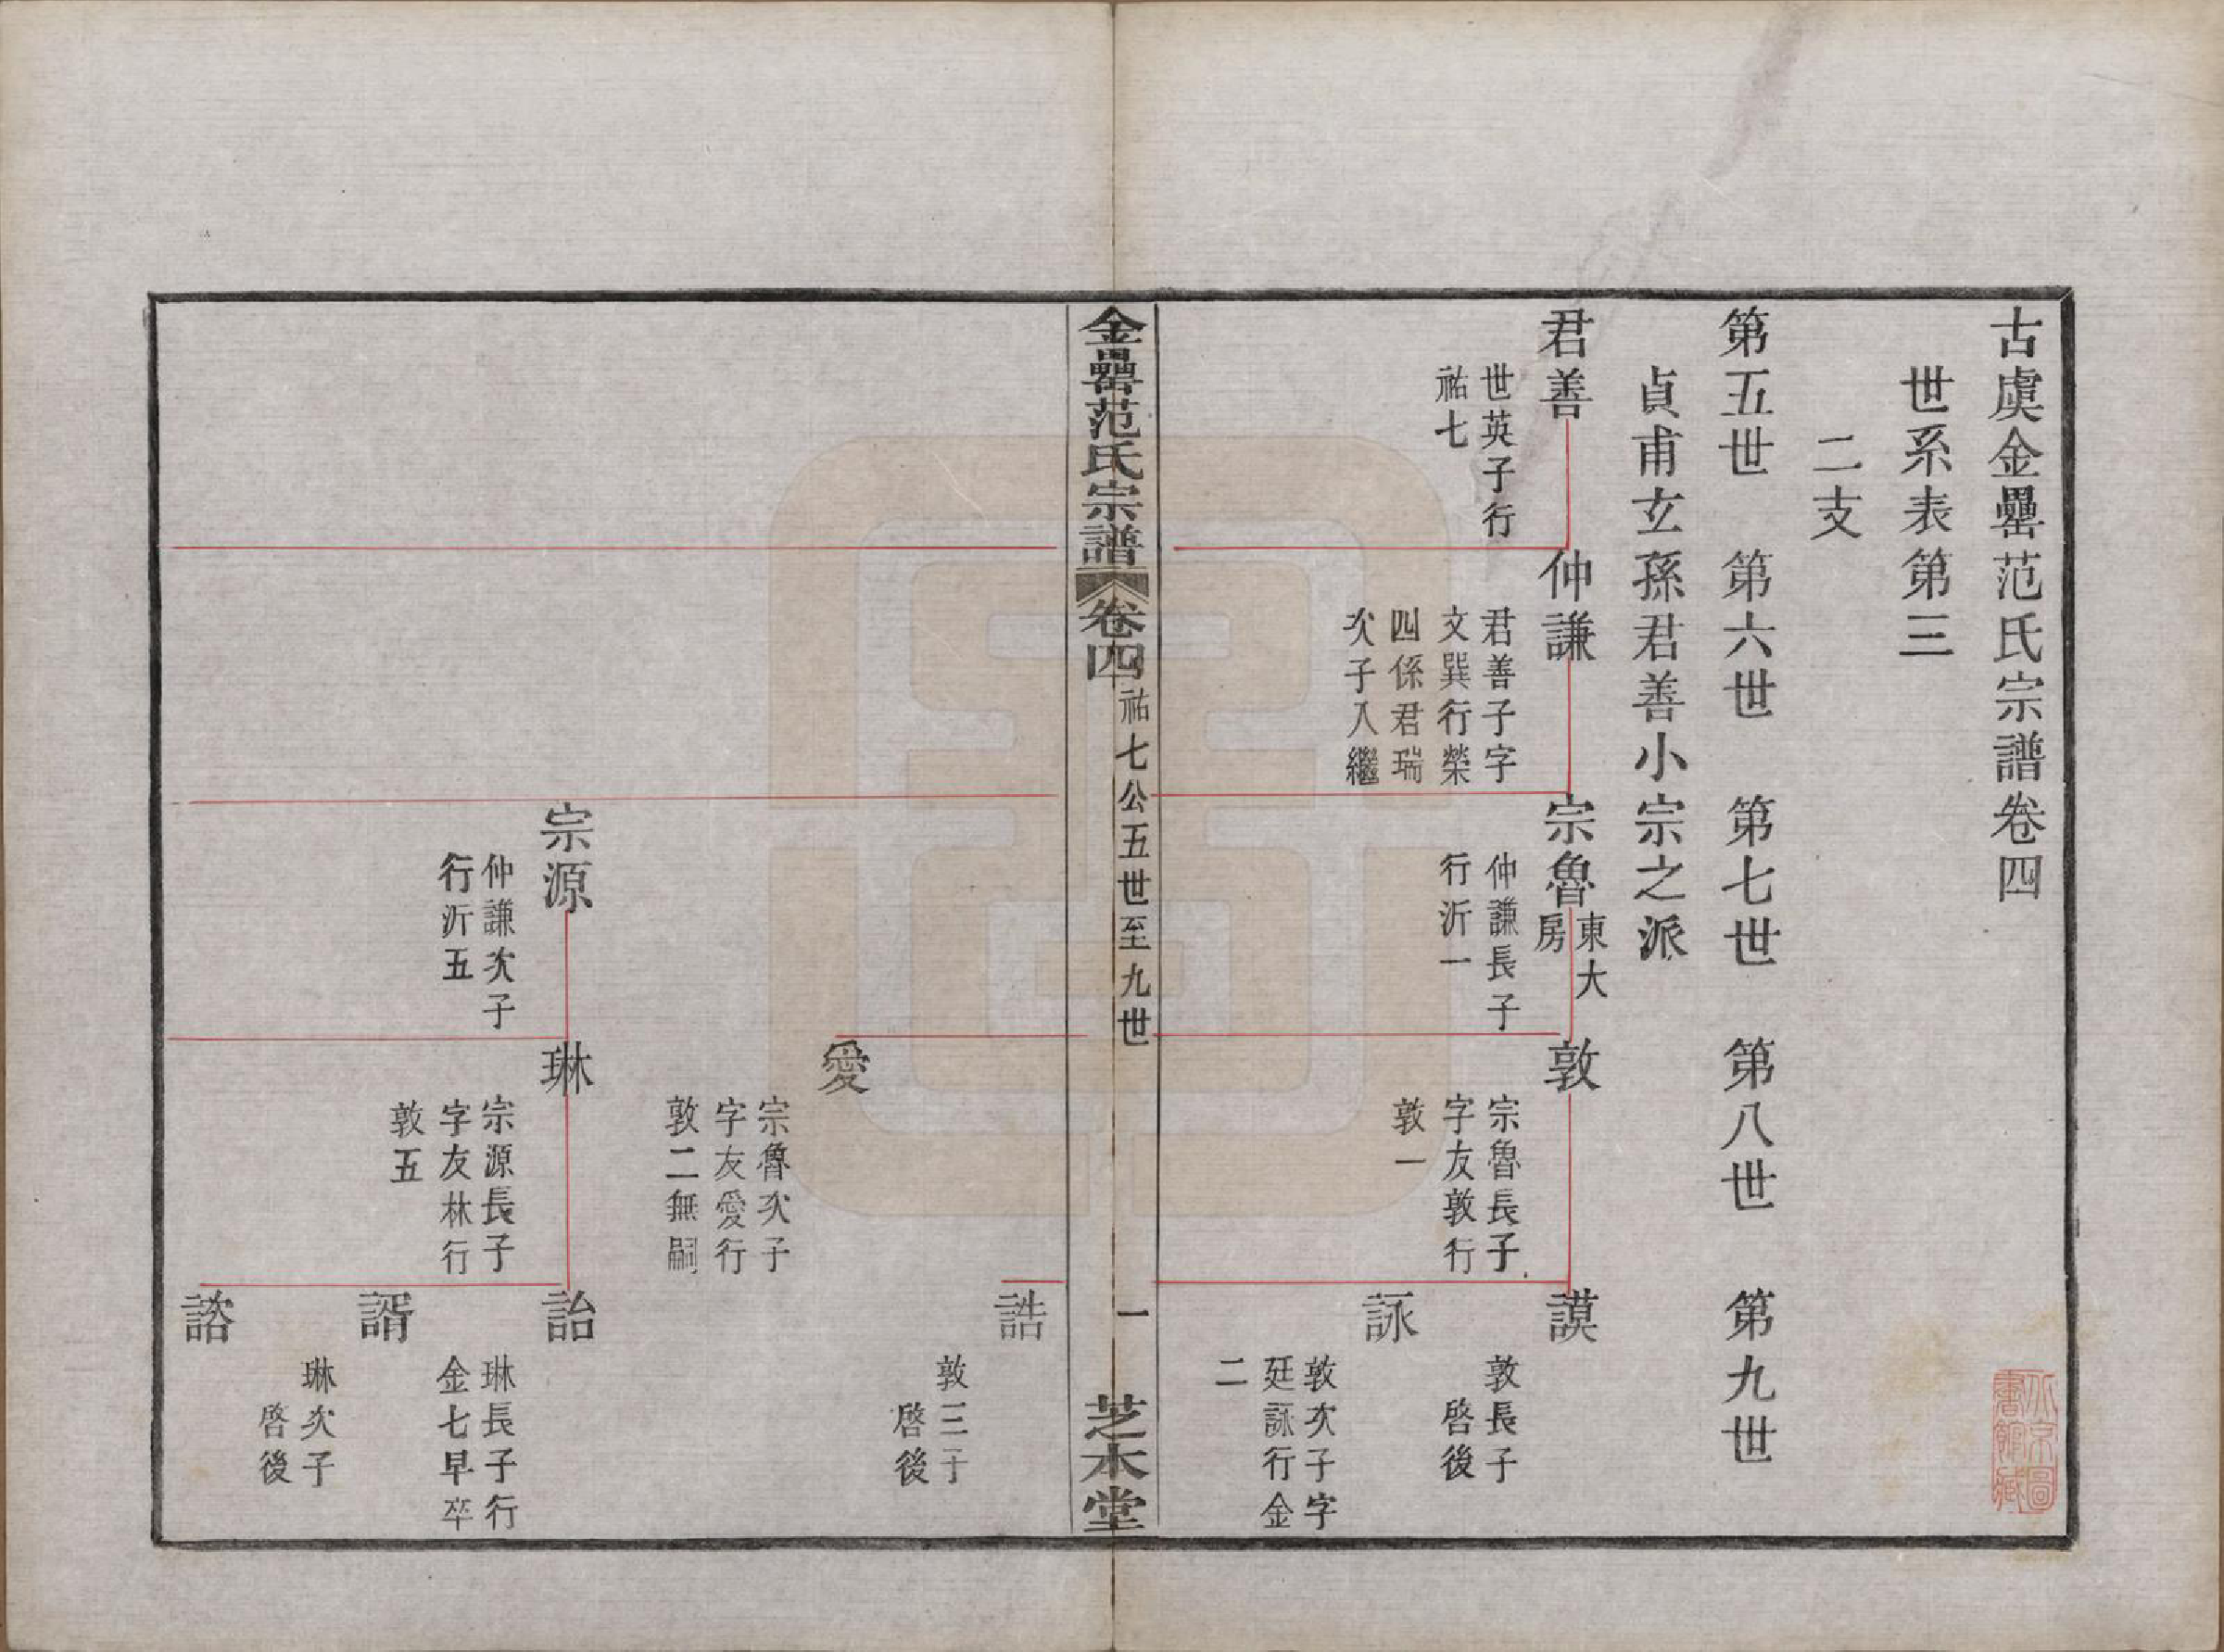 古虞金罍范氏宗譜卷四
世系表第三
二支
第五世　第六世　第七世　第八世　第九世
貞甫玄孫君善小宗之派
君善
世英子行
祐七
仲謙
君善子字
文巽行榮
四係君瑞
次子入繼
宗魯
東大
房
仲謙長子
行沂一
敦
宗魯長子
字友敦行
敦一
謨
敦長子
啓後
詠
敦次子字
廷詠行金
二
金罍范氏宗譜
卷四
祐七公五世至九世
一
芝本堂
誥
敦三子
啓後
愛
宗魯次子
字友愛行
敦二無嗣
宗源
仲謙次子
行沂五
琳
宗源長子
字友林行
敦五
詒
琳長子行
金七早卒
諝
琳次子
啓後
䜭
北京圖
書館藏